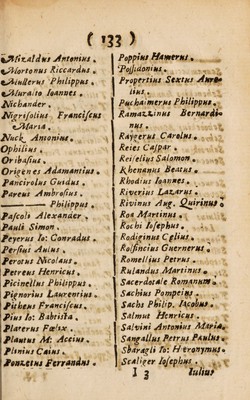 ( 133 )
Mizaldus Antonius.
Mortonus Riccardus.
Mullerus Philippus.
Muralto Ioannes.
Nichander.
Nigrisolius Franciscus
Maria.
Nuck Antonius.
Ophilius.
Oribasius.
Origenes Adamantius.
Pancirolus Guidus.
Pareus Ambrosius.
Philippus.
Pascoli Alexander.
Pauli Simon.
Peyerus Io: Conradus.
Persius Aulus.
Perotus Nicolaus.
Petreus Henricus.
Picinellus Philippus.
Pignorius Laurentius.
Pitheus Franciscus.
Pius Io: Babtista.
Platerus Fælix.
Plautus M: Accius.
Plinius Caius.
Ponzetus Ferrandus.
Poppius Hamerus.
Possidonius.
Propertius Sextus Aure-
lius.
Puchaimerus Philippus.
Ramazzinus Bernardi-
nus.
Raygerus Carolus.
Reies Caspar.
Reiselius Salomon.
Rhenanus Beatus.
Rhodius Ioannes.
Riverius Lazarus.
Rivinus Aug. Quirinus.
Roa Martinus.
Rochi Iosephus.
Rodiginus Cælius.
Rolfincius Guernerus.
Romellius Petrus.
Rulandus Martinus.
Sacerdotale Romanum.
Sachius Pompeius.
Sachs Philip. Jacobus.
Salmut Henricus.
Salvini Antonius Maria.
Sangallus Petrus Paulus.
Sbaragli Io: Hieronymus.
Scaliger Iosephus.
I 3 Iulius